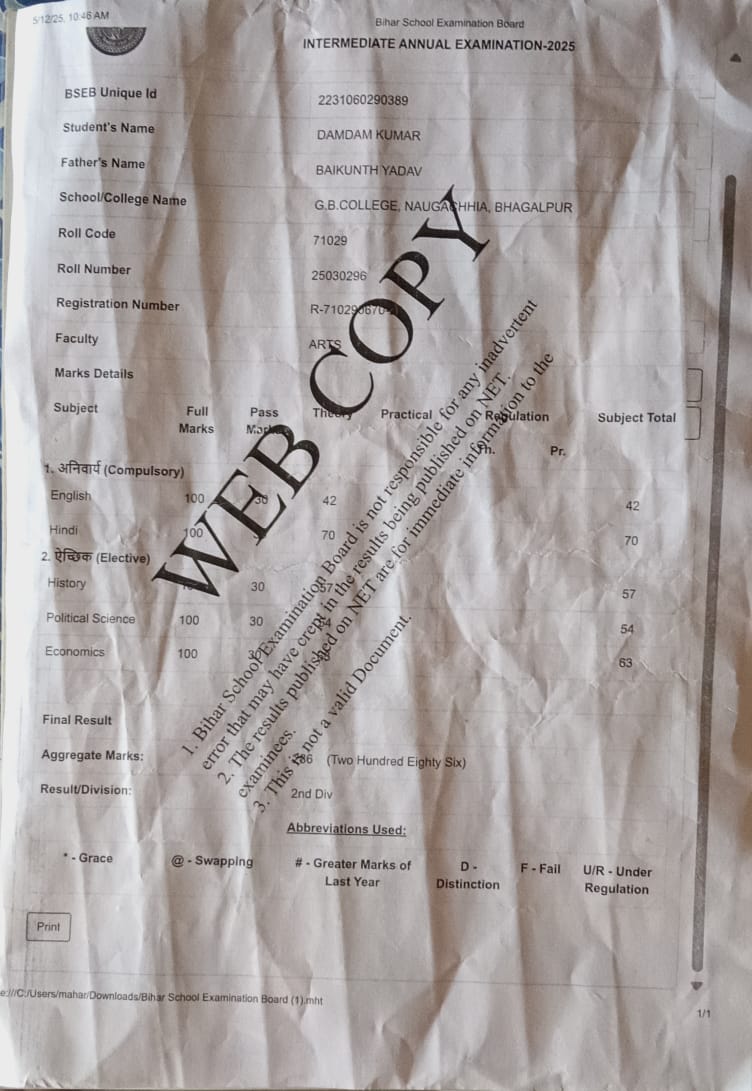 5/12/25, 10:46 AM
Bihar School Examination Board
INTERMEDIATE ANNUAL EXAMINATION-2025
BSEB Unique Id 2231060290389
Student's Name DAMDAM KUMAR
Father's Name BAIKUNTH YADAV
School/College Name G.B.COLLEGE, NAUGACHHIA, BHAGALPUR
Roll Code 71029
Roll Number 25030296
Registration Number
Faculty ARTS
Marks Details
Subject Full Marks Pass Marks Theory Practical Regulation Subject Total
Th. Pr.
1. अनिवार्य (Compulsory)
English 100 30 42 42
Hindi 100 70 70
2. ऐच्छिक (Elective)
History 30 57 57
Political Science 100 30 54 54
Economics 100 63
Final Result
Aggregate Marks: 286 (Two Hundred Eighty Six)
Result/Division: 2nd Div
WEB COPY
1. Bihar School Examination Board is not responsible for any inadvertent
error that may have crept in the results being published on NET.
2. The results published on NET are for immediate information to the
examinees.
3. This is not a valid Document.
Abbreviations Used:
* - Grace @ - Swapping # - Greater Marks of Last Year D - Distinction F - Fail U/R - Under Regulation
Print
e:///C:/Users/mahar/Downloads/Bihar School Examination Board (1).mht
1/1